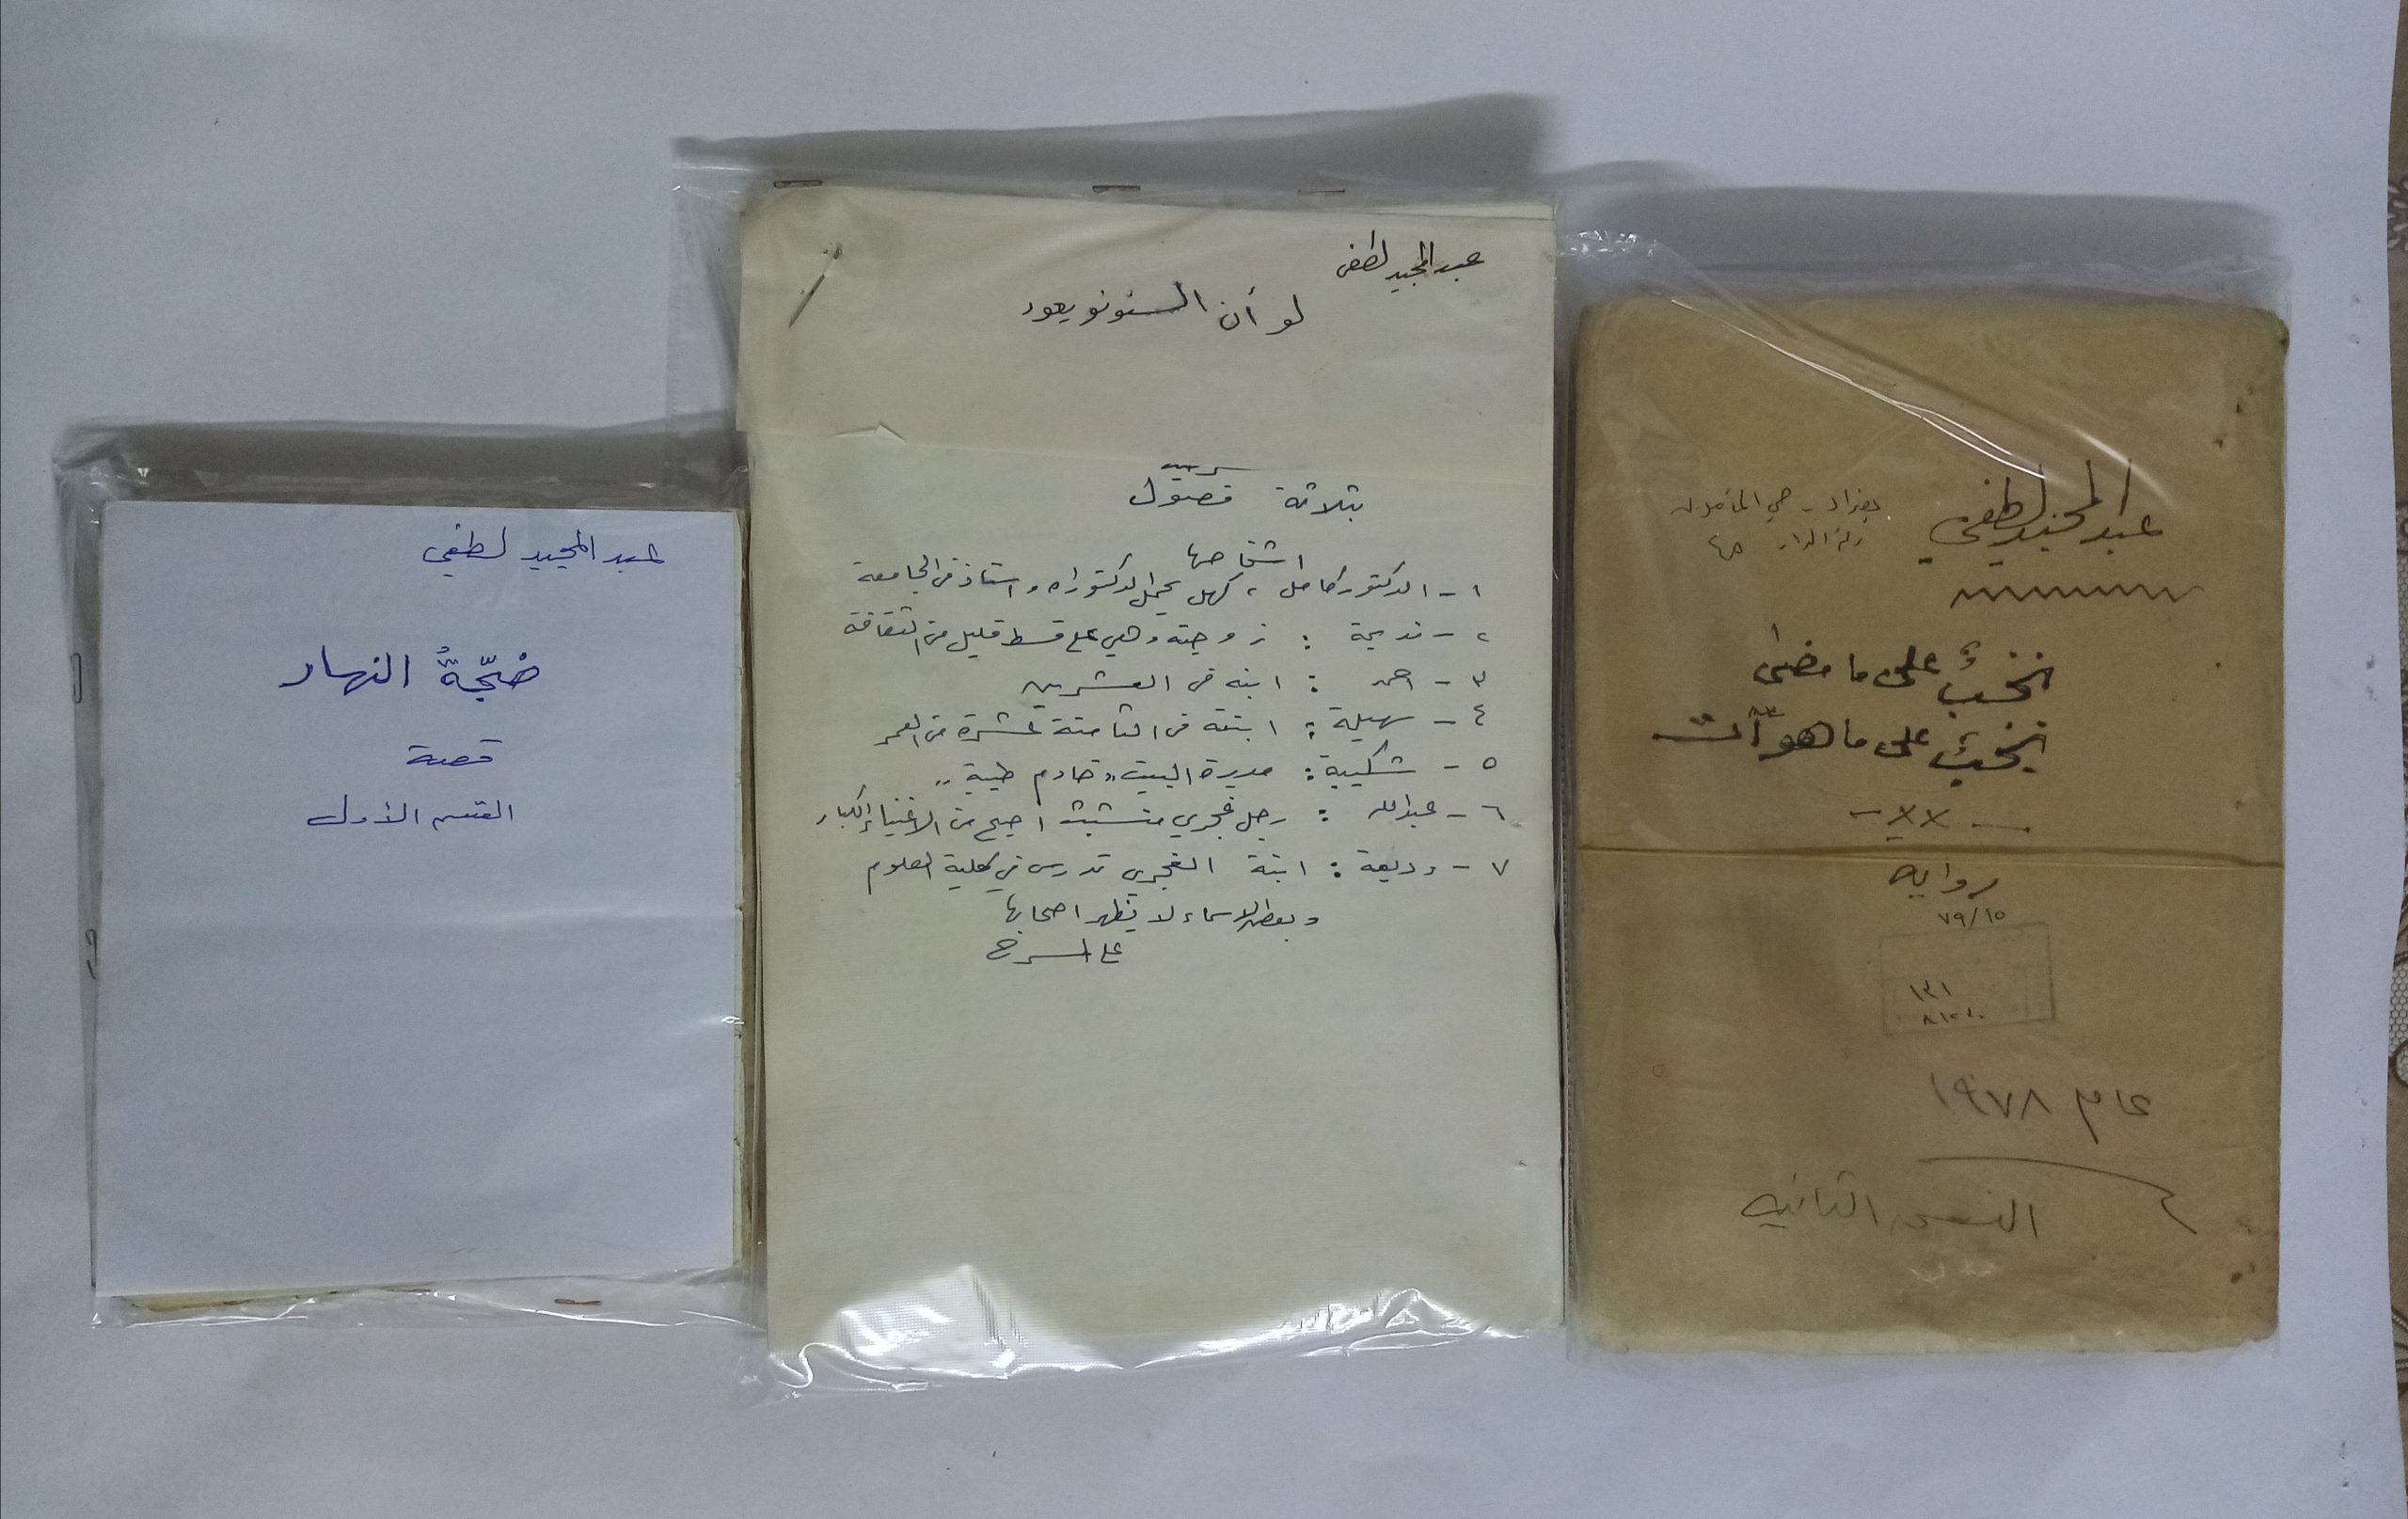 عبد المجيد لطفي
بغداد - حي المأمون
رقم الدار
نخبُ على ما مضى
نخبُ على ما هو آتٍ
رواية
٧٩/١٥
١٣١
عام ١٩٧٨
النسخة الثانية
عبد المجيد لطفي
لو أن السنونو يعود
بثلاثة فصول
اشخاصها
١ - الدكتور كامل ، كهل يحمل الدكتوراه واستاذ في الجامعة
٢ - نديمة : زوجته وهي على قسط قليل من الثقافة
٣ - احمد : ابنه في العشرين
٤ - سهيلة : ابنته في الثامنة عشرة من العمر
٥ - شكيبة : مديرة البيت " خادم طيبة "
٦ - عبدالله : رجل غجري متشبث اصبح من الاغنياء الكبار
٧ - وديعة : ابنة الغجري تدرس في كلية العلوم
وبعض الاسماء لا يظهر اصحابها
على المسرح
عبد المجيد لطفي
ضجّةُ النهار
قصة
القسم الأول